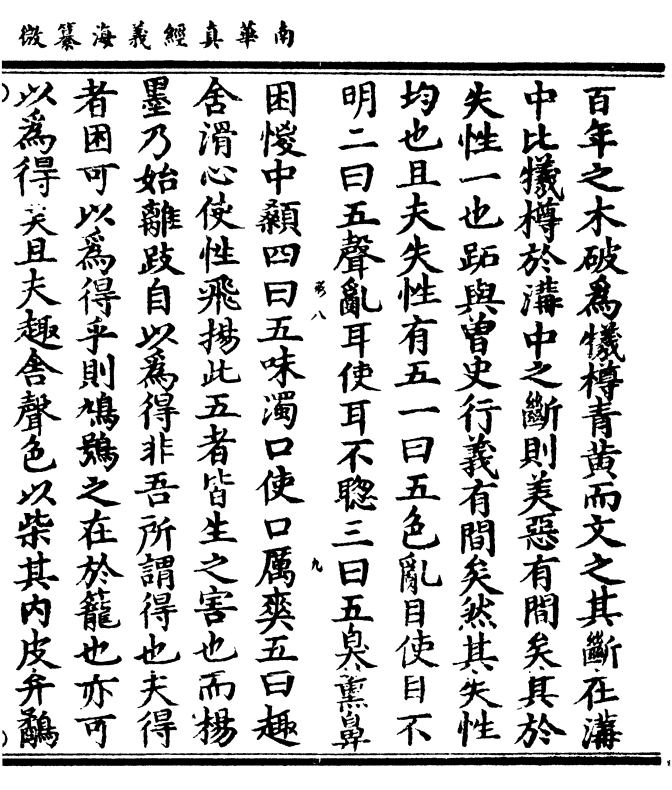 南華真經義海纂微
百年之木破爲犧樽青黃而文之其斷在溝
中比犧樽於溝中之斷則美惡有間矣其於
失性一也跖與曾史行義有間矣然其失性
均也且夫失性有五一曰五色亂目使目不
明二曰五聲亂耳使耳不聦三曰五臭薰鼻
困惾中顙四曰五味濁口使口厲爽五曰趣
舍滑心使性飛揚此五者皆生之害也而楊
墨乃始離跂自以爲得非吾所謂得也夫得
者困可以爲得乎則鳩鴞之在於籠也亦可
以爲得矣且夫趣舍聲色以柴其内皮弁鷸